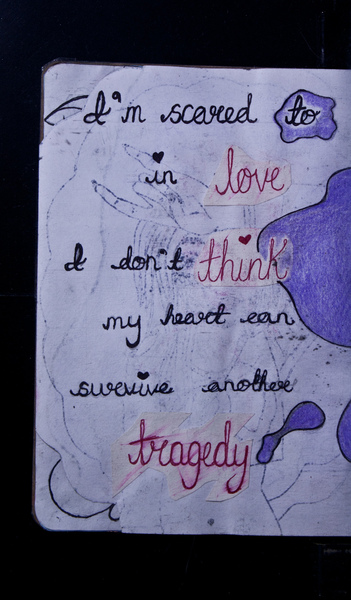 I'm scared to
in love
I don't think
my heart can
survive another
tragedy